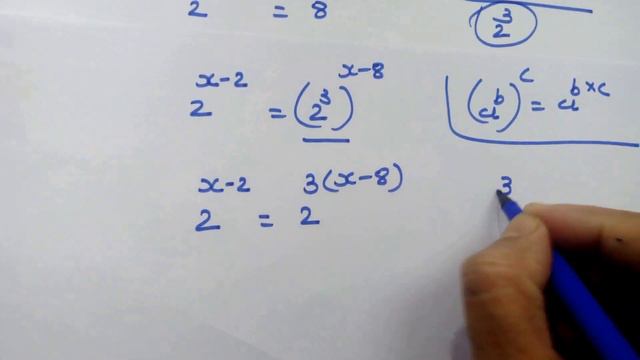 2 = 8
2³
2^(x-2) = (2³)^(x-8)
(a^b)^c = a^(b×c)
2^(x-2) = 2^(3(x-8))
3